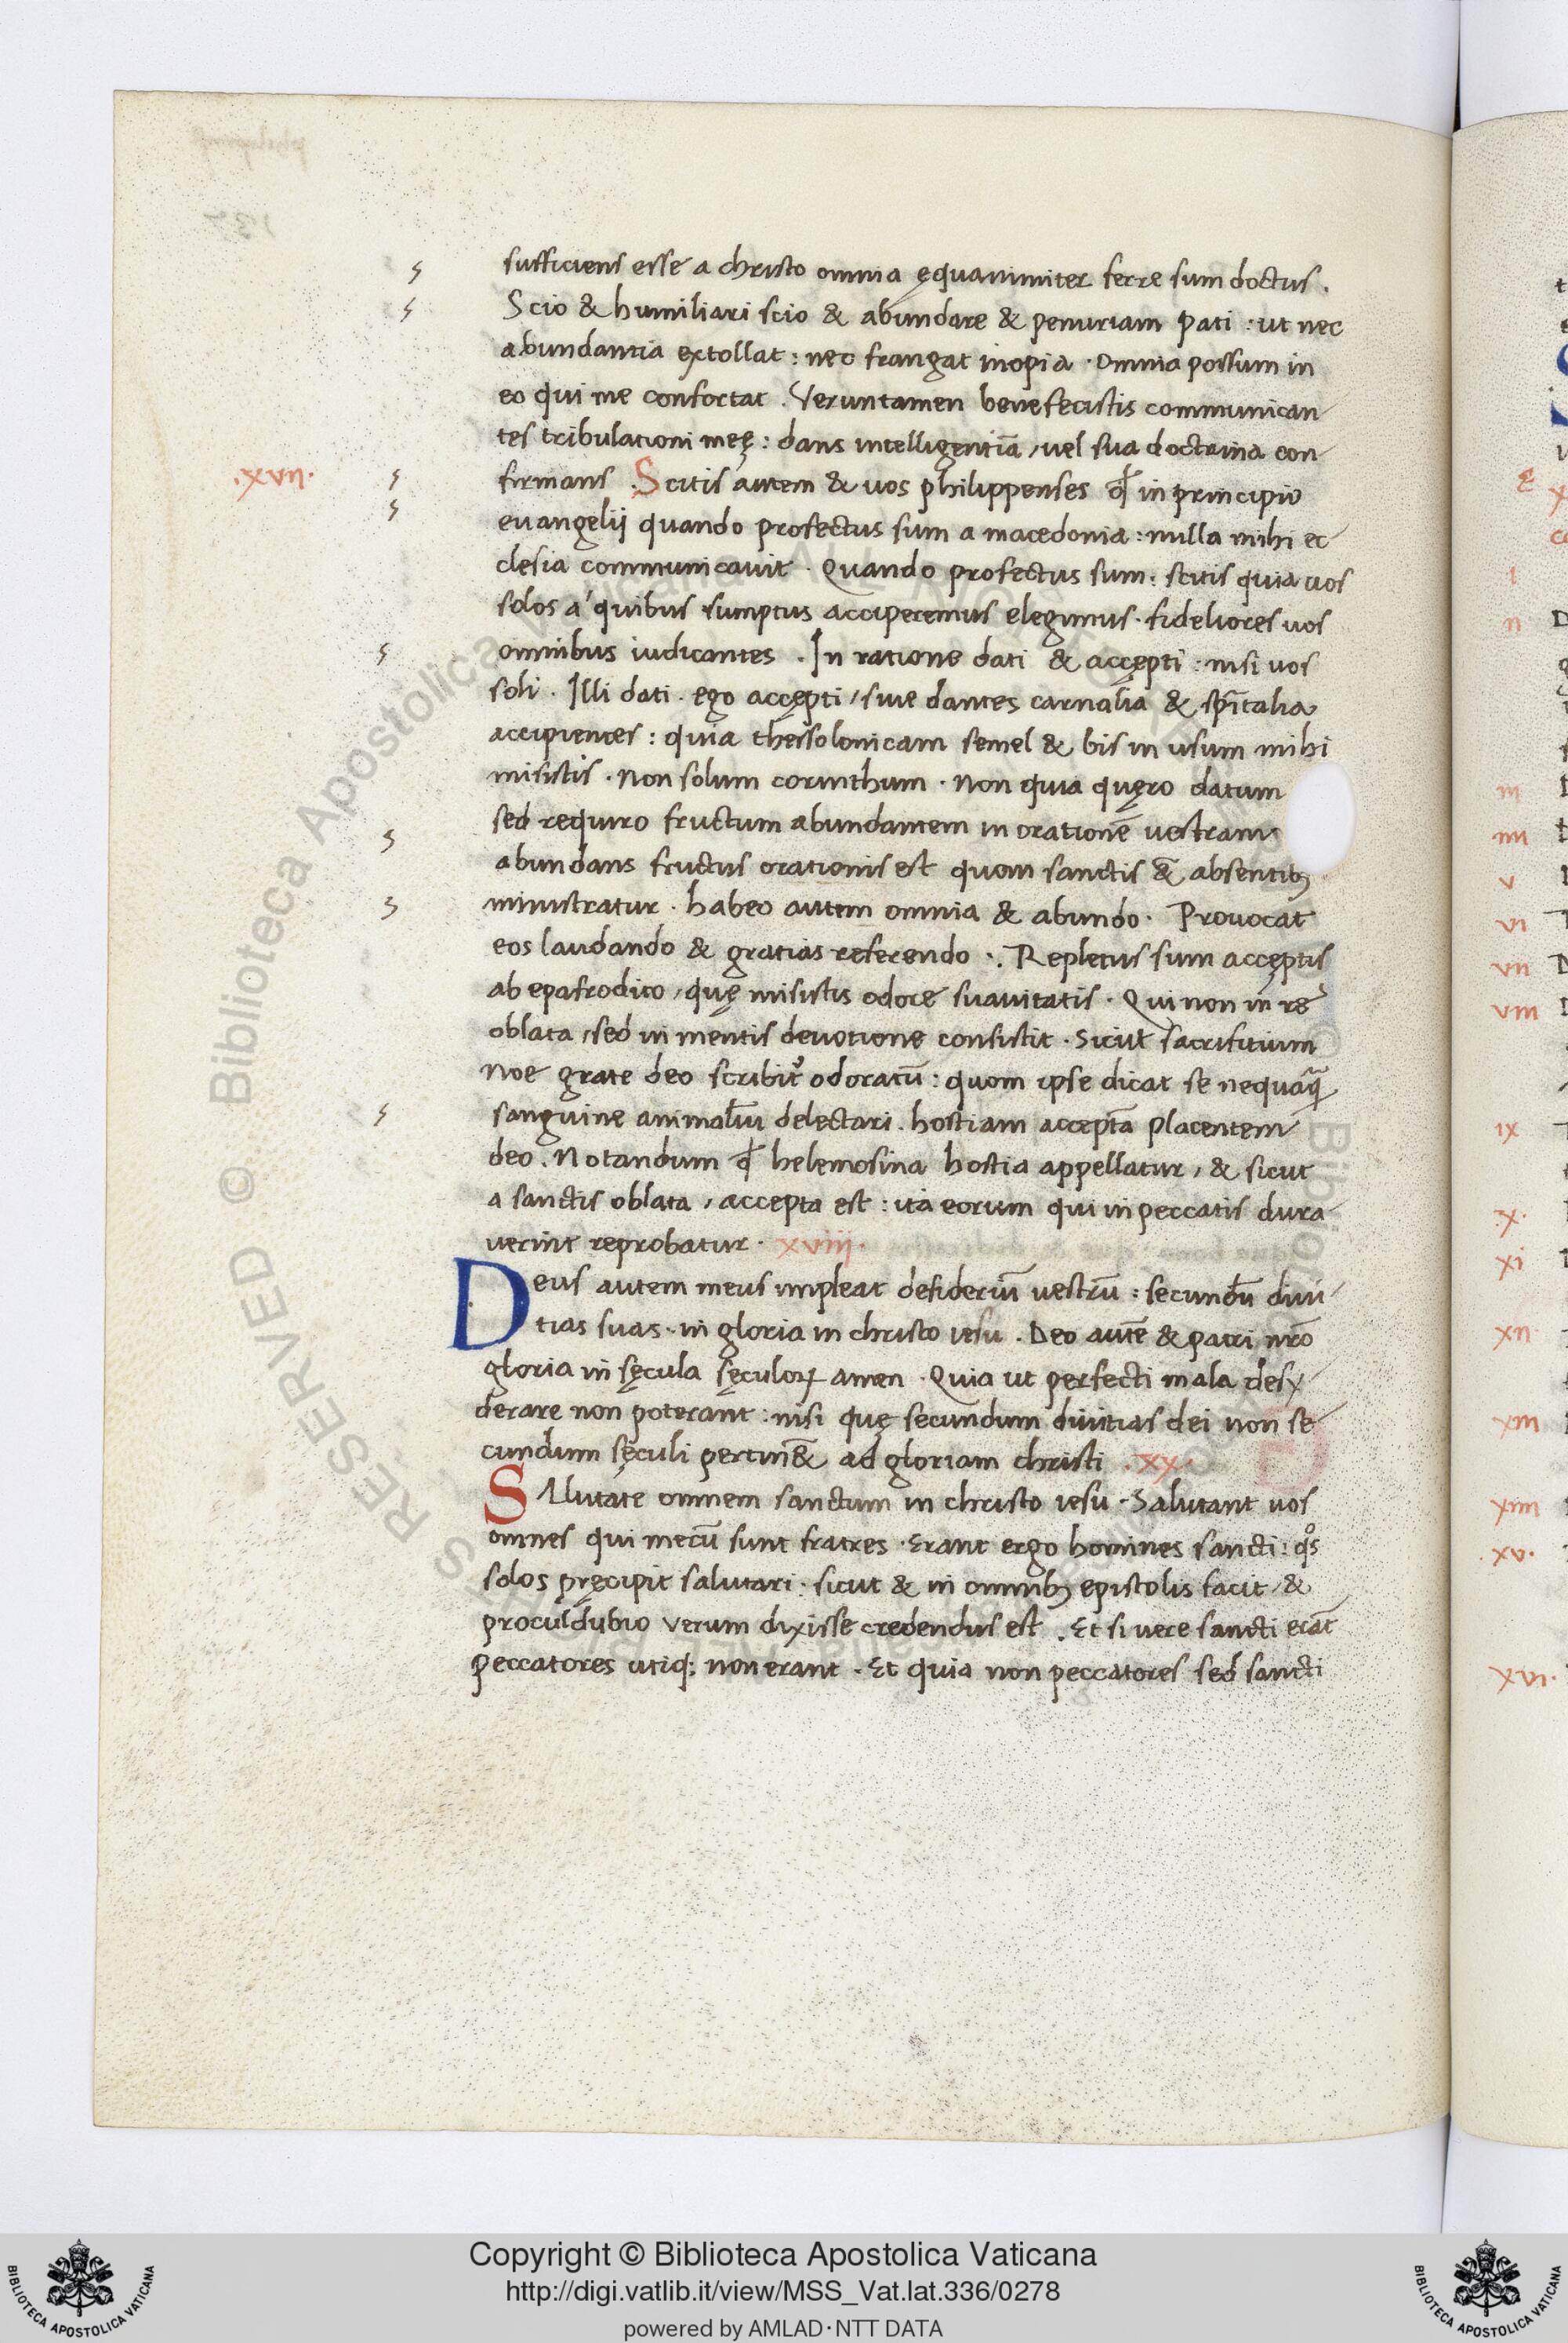 sufficiens esse a christo omnia ęquanimiter ferre sum doctus .
Scio & humiliari scio & abundare & penuriam pati : ut nec
abundantia extollat : nec frangat inopia . Omnia possum in
eo qui me confortat . Veruntamen bene fecistis communican
tes tribulationi meę : dans intelligentiā / uel sua doctrina con
.xvii. firmans . Scitis autem & uos philippenses qđ in principio
euangelij quando profectus sum a macedonia : nulla mihi ec
clesia communicauit . Quando profectus sum : scitis quia uos
solos a quibus sumptus acciperemus elegimus . fideliores uos
omnibus iudicantes . In ratione dati & accępti : nisi uos
soli . Illi dati . ego accępti / siue dantes carnalia & spītalia
accipientes : quia thessolonicam semel & bis in usum mihi
misistis . Non solum corinthum . Non quia quęro datum
sed requiro fructum abundantem in orationē uestram
abundans fructus orationis est quom sanctis & absentibꝫ
ministratur . habeo autem omnia & abundo . Prouocat
eos laudando & gratias referendo . Repletus sum accęptis
ab epafrodito / quę misistis odore suauitatis . Qui non in re
oblata / sed in mentis deuotione consistit . Sicut sacrifitium
Noe grate deo scribit odoratū : quom ipse dicat se nequaq̄
sanguine animaliū delectari . hostiam acceptā placentem
deo . Notandum qđ helemosina hostia appellatur , & sicut
a sanctis oblata / accepta est : ita eorum qui in peccatis dura
uerint reprobatur . xviij .
Deus autem meus impleat desideriū uestrū : secundū diui
tias suas . in gloria in christo iesu . Deo autē & patri nr̄o
gloria in sęcula sęculoꝝ amen . Quia ut perfecti mala desy
derare non poterant : nisi quę secundum diuitias dei non se
cundum sęculi pertin& ad gloriam christi . xx .
SAlutate omnem sanctum in christo iesu . Salutant uos
omnes qui mecū sunt fratres . Erant ergo homines sancti : qͦs
solos pręcipit salutari . sicut & in omnibꝫ epistolis facit / &
proculdubio verum dixisse credendus est . Et si uere sancti erāt
peccatores utiqꝫ non erant . Et quia non peccatores sed sancti
Copyright © Biblioteca Apostolica Vaticana
http://digi.vatlib.it/view/MSS_Vat.lat.336/0278
powered by AMLAD·NTT DATA